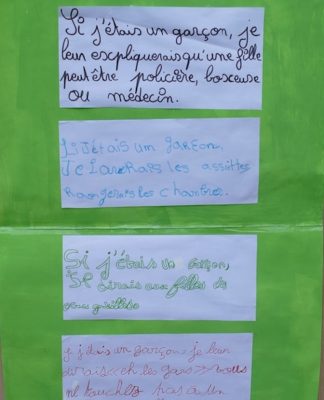 Si j'étais un garçon, je
leur expliquerais qu'une fille
peut être policière, boxeuse
ou médecin.
Si J'étais un garçon.
les assiettes
les chambres.
Si j'étais un garçon,
aux filles de
si j'étais un garçon, je leur
dirais « eh les gars vous
ne touchez pas à un